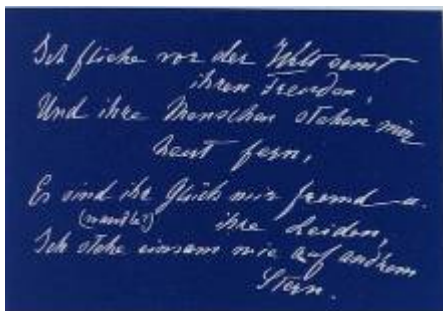 Ich fliehe vor der Welt samt
ihren Freuden,
Und ihre Menschen stehen mir
heut fern,
Es sind ihr Glück mir fremd u.
ihre Leiden,
Ich stehe einsam wie auf andrem
Stern.